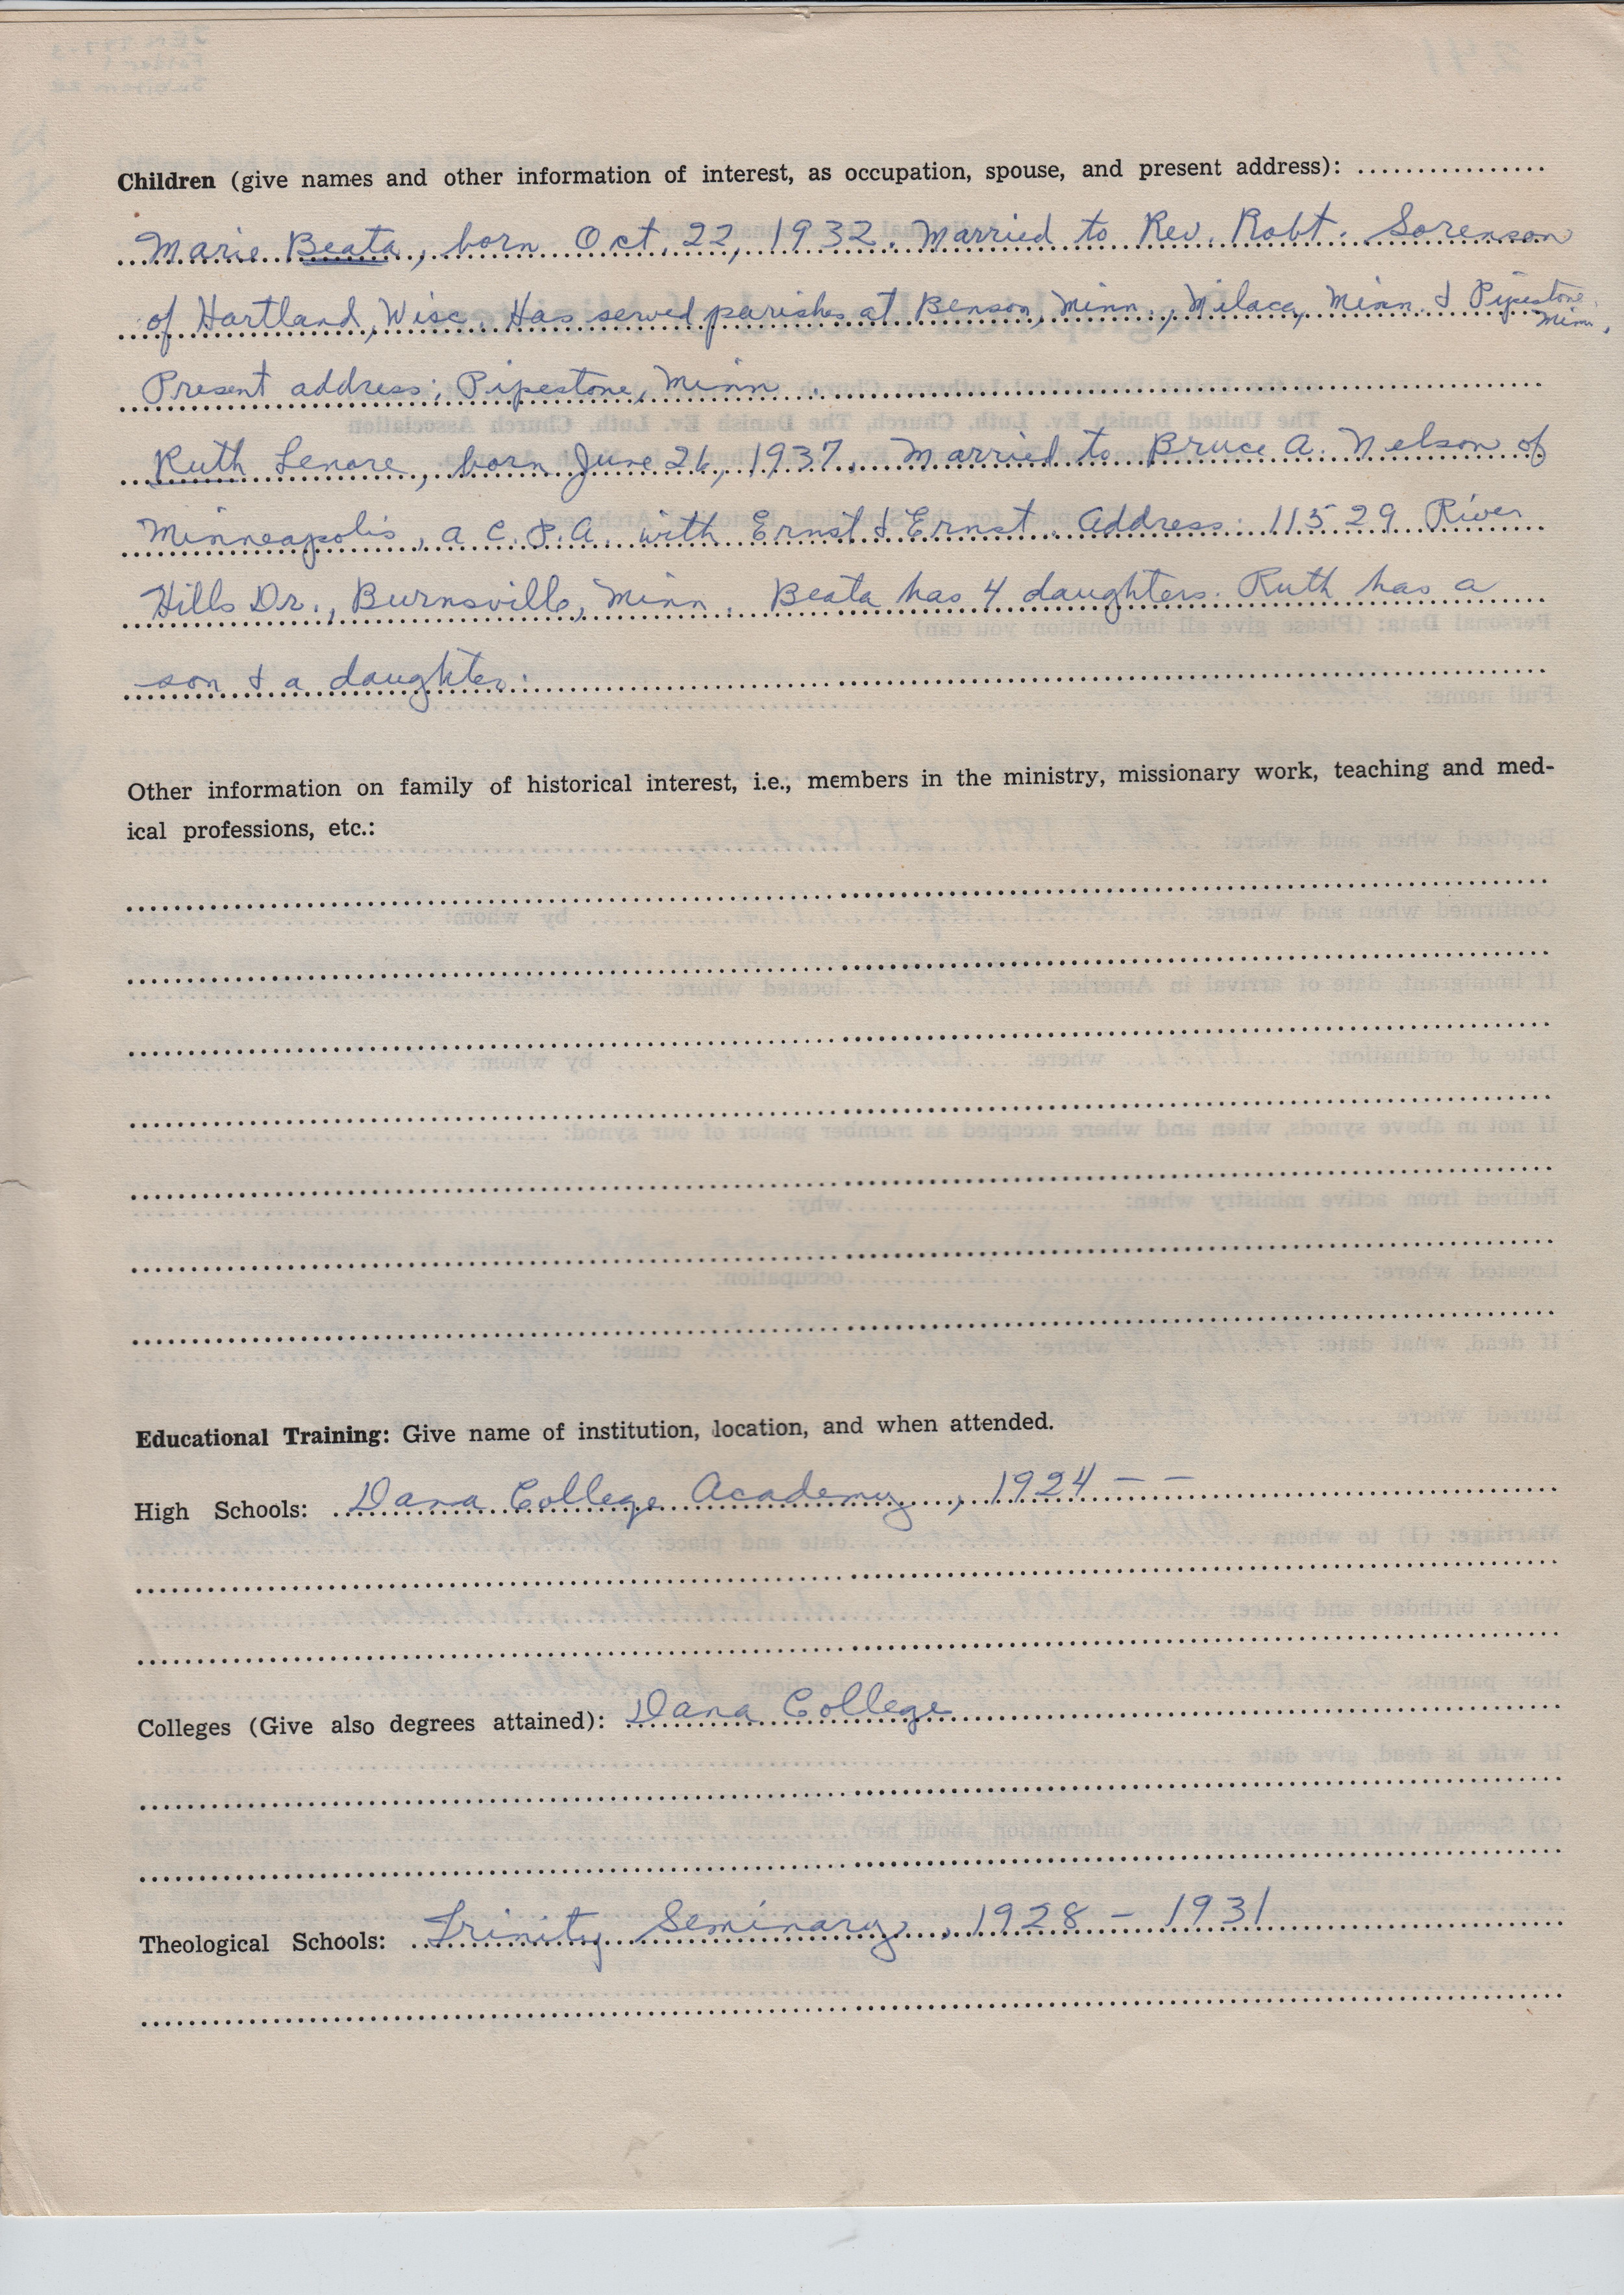 Children (give names and other information of interest, as occupation, spouse, and present address):
Marie Beata, born Oct. 22, 1932. Married to Rev. Robt. Sorenson
of Hartland, Wisc. Has served parishes at Benson, Minn., Milaca, Minn. & Pipestone, Minn.
Present address: Pipestone, Minn.
Ruth Lenore, born June 26, 1937. Married to Bruce A. Nelson of
Minneapolis, a C.P.A. with Ernst & Ernst. Address: 11529 River
Hills Dr., Burnsville, Minn. Beata has 4 daughters. Ruth has a
son & a daughter.
Other information on family of historical interest, i.e., members in the ministry, missionary work, teaching and med-
ical professions, etc.:
Educational Training: Give name of institution, location, and when attended.
High Schools: Dana College Academy, 1924 – –
Colleges (Give also degrees attained): Dana College
Theological Schools: Trinity Seminary, 1928 – 1931